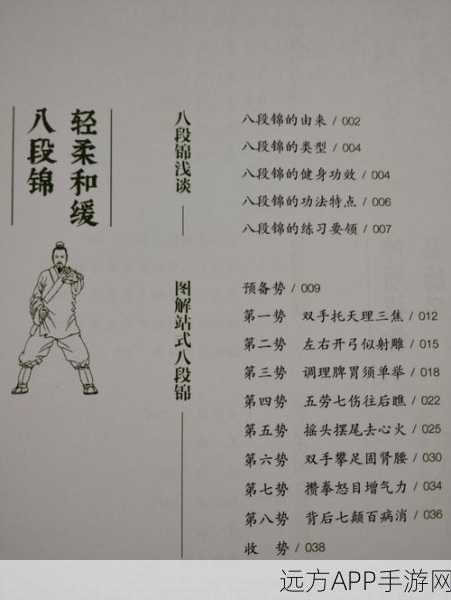 轻柔和缓
八段锦
八段锦浅谈
八段锦的由来 / 002
八段锦的类型 / 004
八段锦的健身功效 / 004
八段锦的功法特点 / 006
八段锦的练习要领 / 007
图解站式八段锦
预备势 / 009
第一势 双手托天理三焦 / 012
第二势 左右开弓似射雕 / 015
第三势 调理脾胃须单举 / 018
第四势 五劳七伤往后瞧 / 022
第五势 摇头摆尾去心火 / 025
第六势 双手攀足固肾腰 / 030
第七势 攒拳怒目增气力 / 034
第八势 背后七颠百病消 / 036
收 势 / 038
远方APP手游网